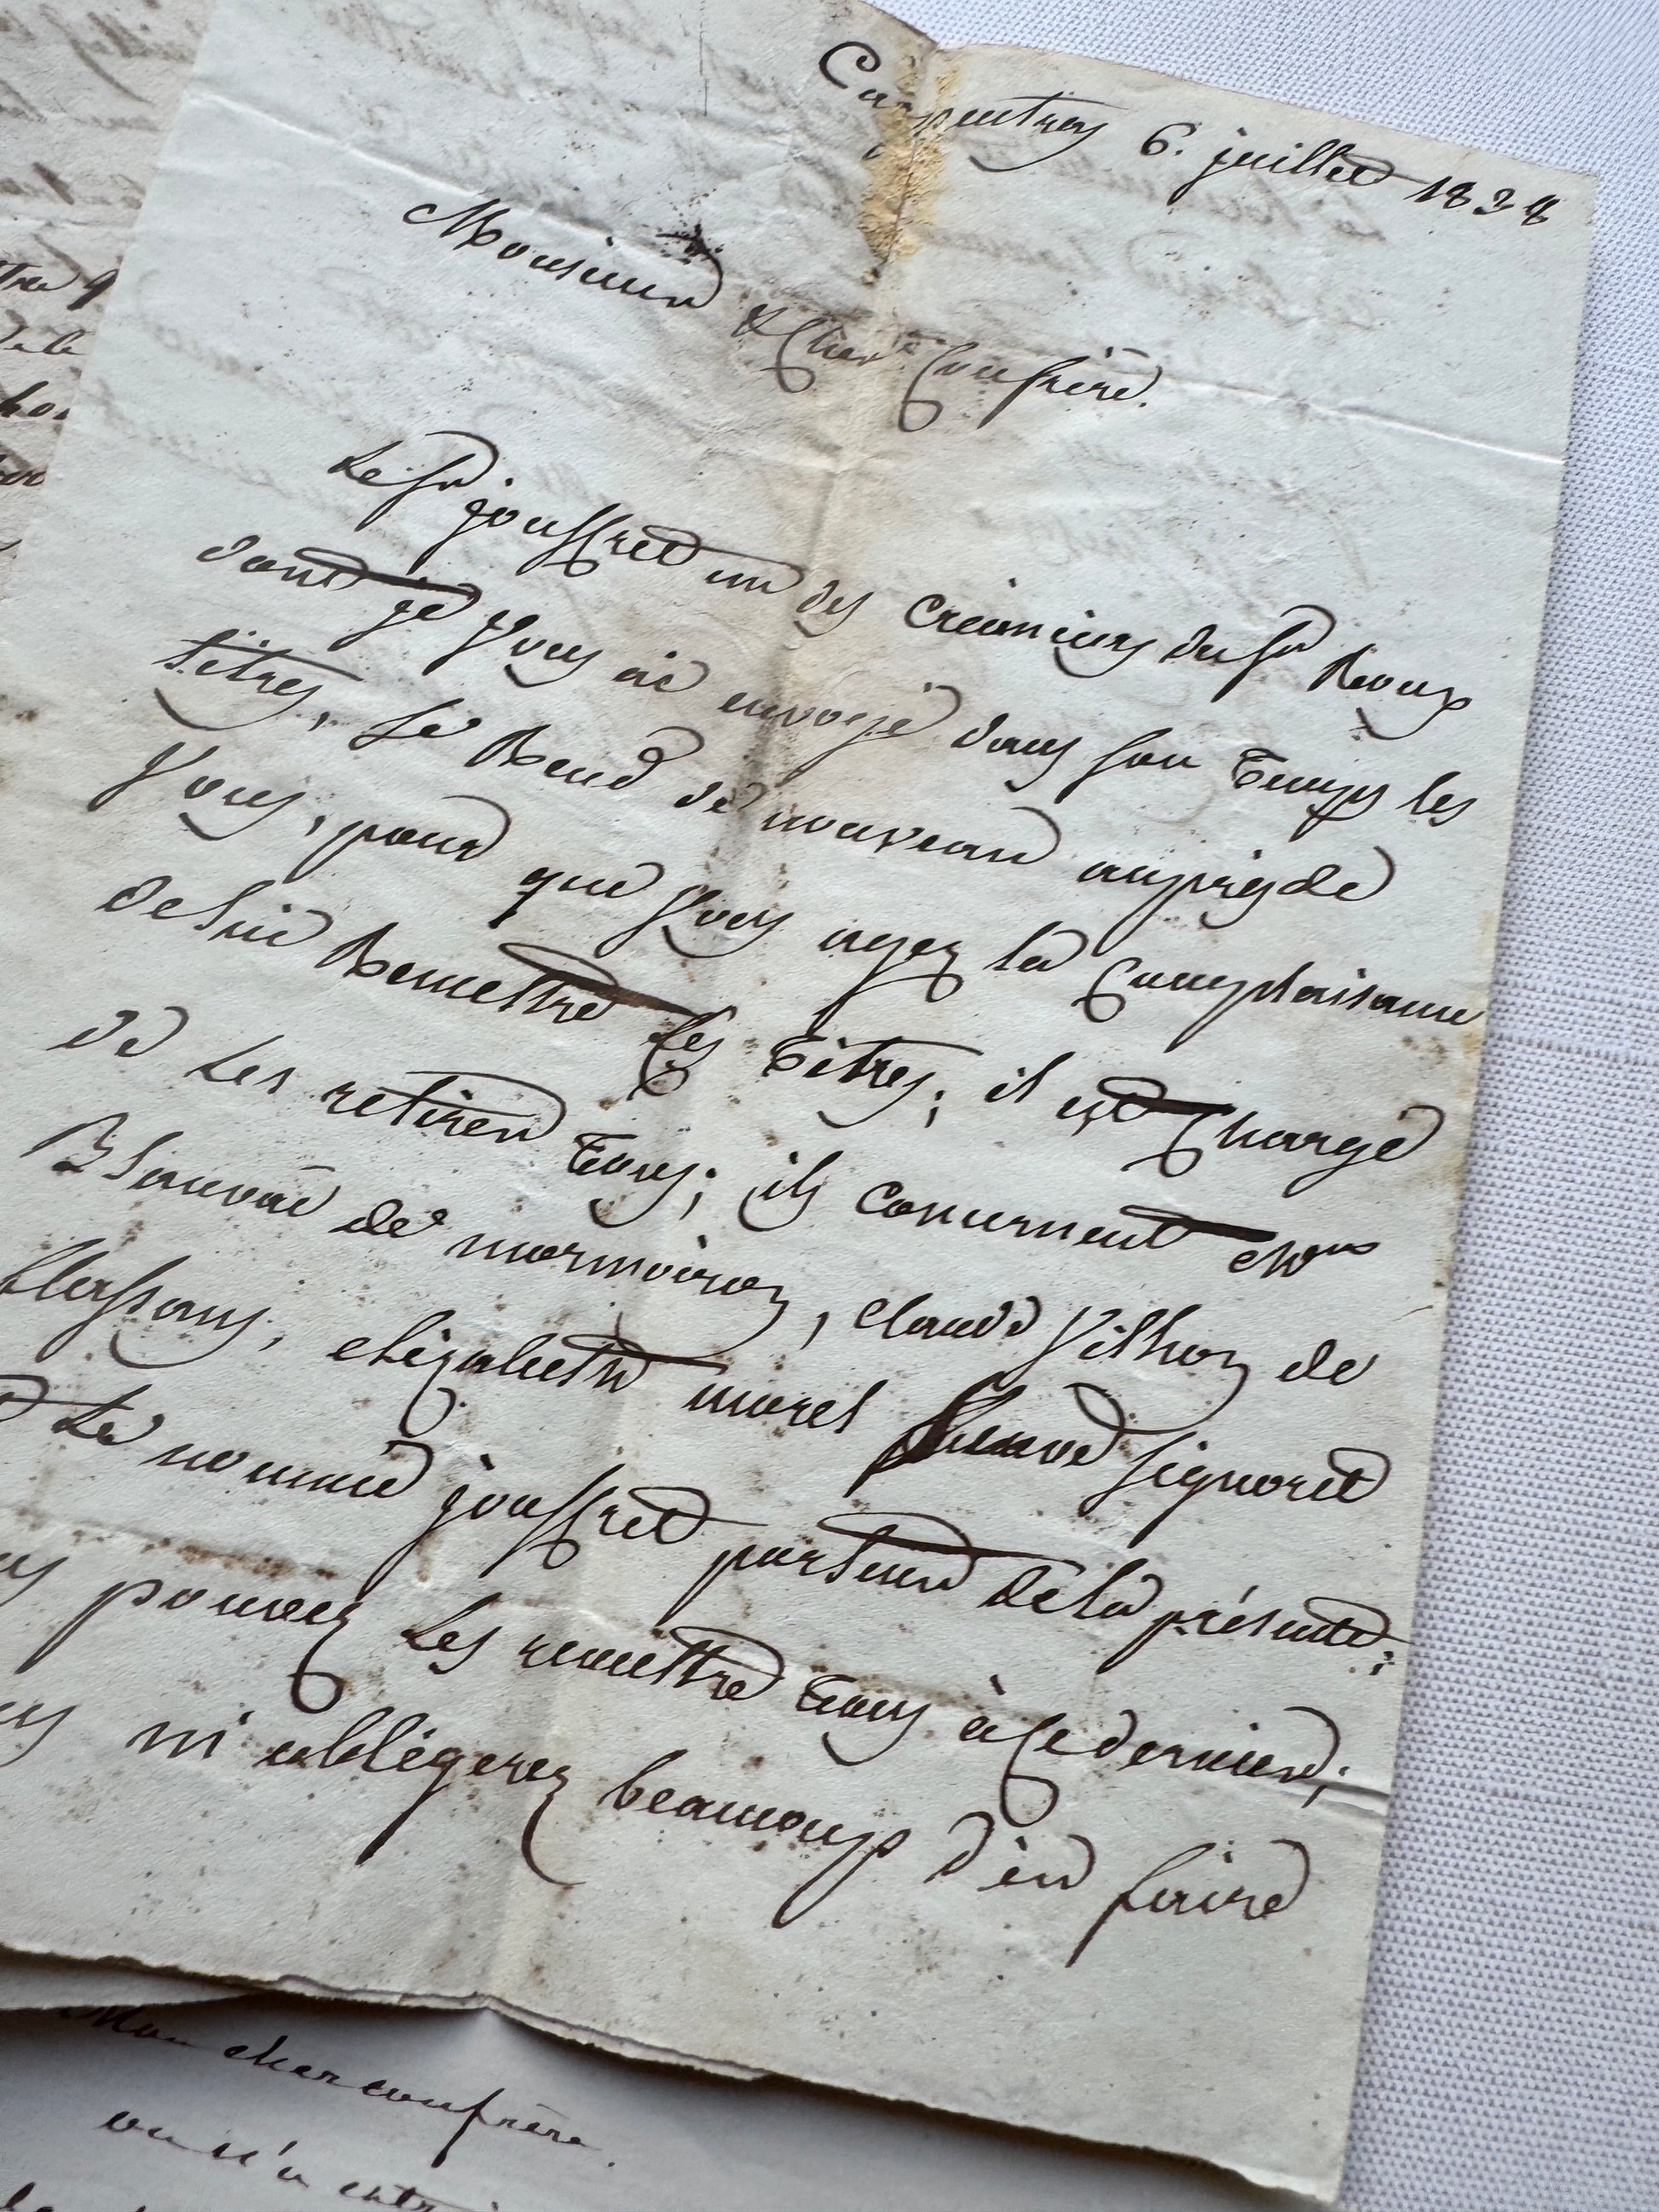 Carpentras 6. juillet 1838
Monsieur & Cher Confrère.
Le Sr jouffret un des créanciers du Sr Roux
dont je Vous ai envoyé dans son Temps les
titres, se Rend de nouveau auprès de
Vous, pour que Vous ayez la Complaisance
de lui Remettre les Titres; il est Chargé
de Les retirer Tous; ils concernent
Blauvac de mormoiron, claude Vilhon de
flassans, elizabeth morel veuve signoret
Le nommé jouffret porteur de la présente;
pouvez Les remettre Tous à Ce dernier;
m'obligerez beaucoup d'en faire
Mon cher confrère.
on n'a